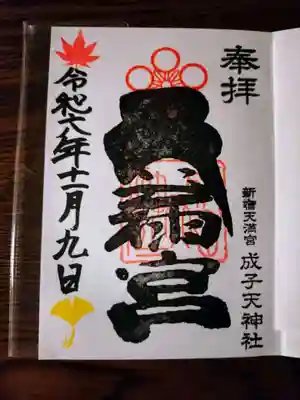 奉拝
新宿天満宮 成子天神社
天満宮
令和六年十一月九日